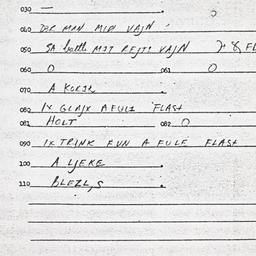 030 —
040 DER MAN MIDI VAJN
050 SA bottle MIT REJTI VAJN
060 O 061 O
070 A KORIK
080 IX GLAJX A FULE FLASH
081 HOLT 082 O
090 IX TRINK FUN A FULE FLASH
100 A LJEKE
110